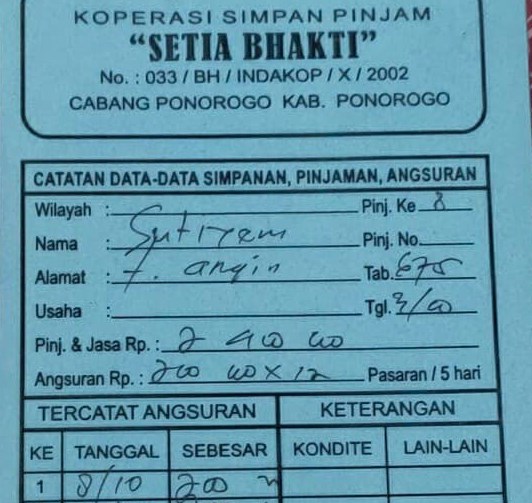 KOPERASI SIMPAN PINJAM
"SETIA BHAKTI"
No. : 033 / BH / INDAKOP / X / 2002
CABANG PONOROGO KAB. PONOROGO
CATATAN DATA-DATA SIMPANAN, PINJAMAN, ANGSURAN
Wilayah : Pinj. Ke 8
Nama : Sutiyem Pinj. No.
Alamat : T. angin Tab. 675
Usaha : Tgl. 3/10
Pinj. & Jasa Rp. : 2 400 00
Angsuran Rp. : 200 00 X 12 Pasaran / 5 hari
TERCATAT ANGSURAN KETERANGAN
KE TANGGAL SEBESAR KONDITE LAIN-LAIN
1 8/10 200